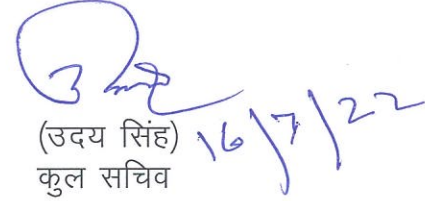 (उदय सिंह) 16/7/22
कुल सचिव